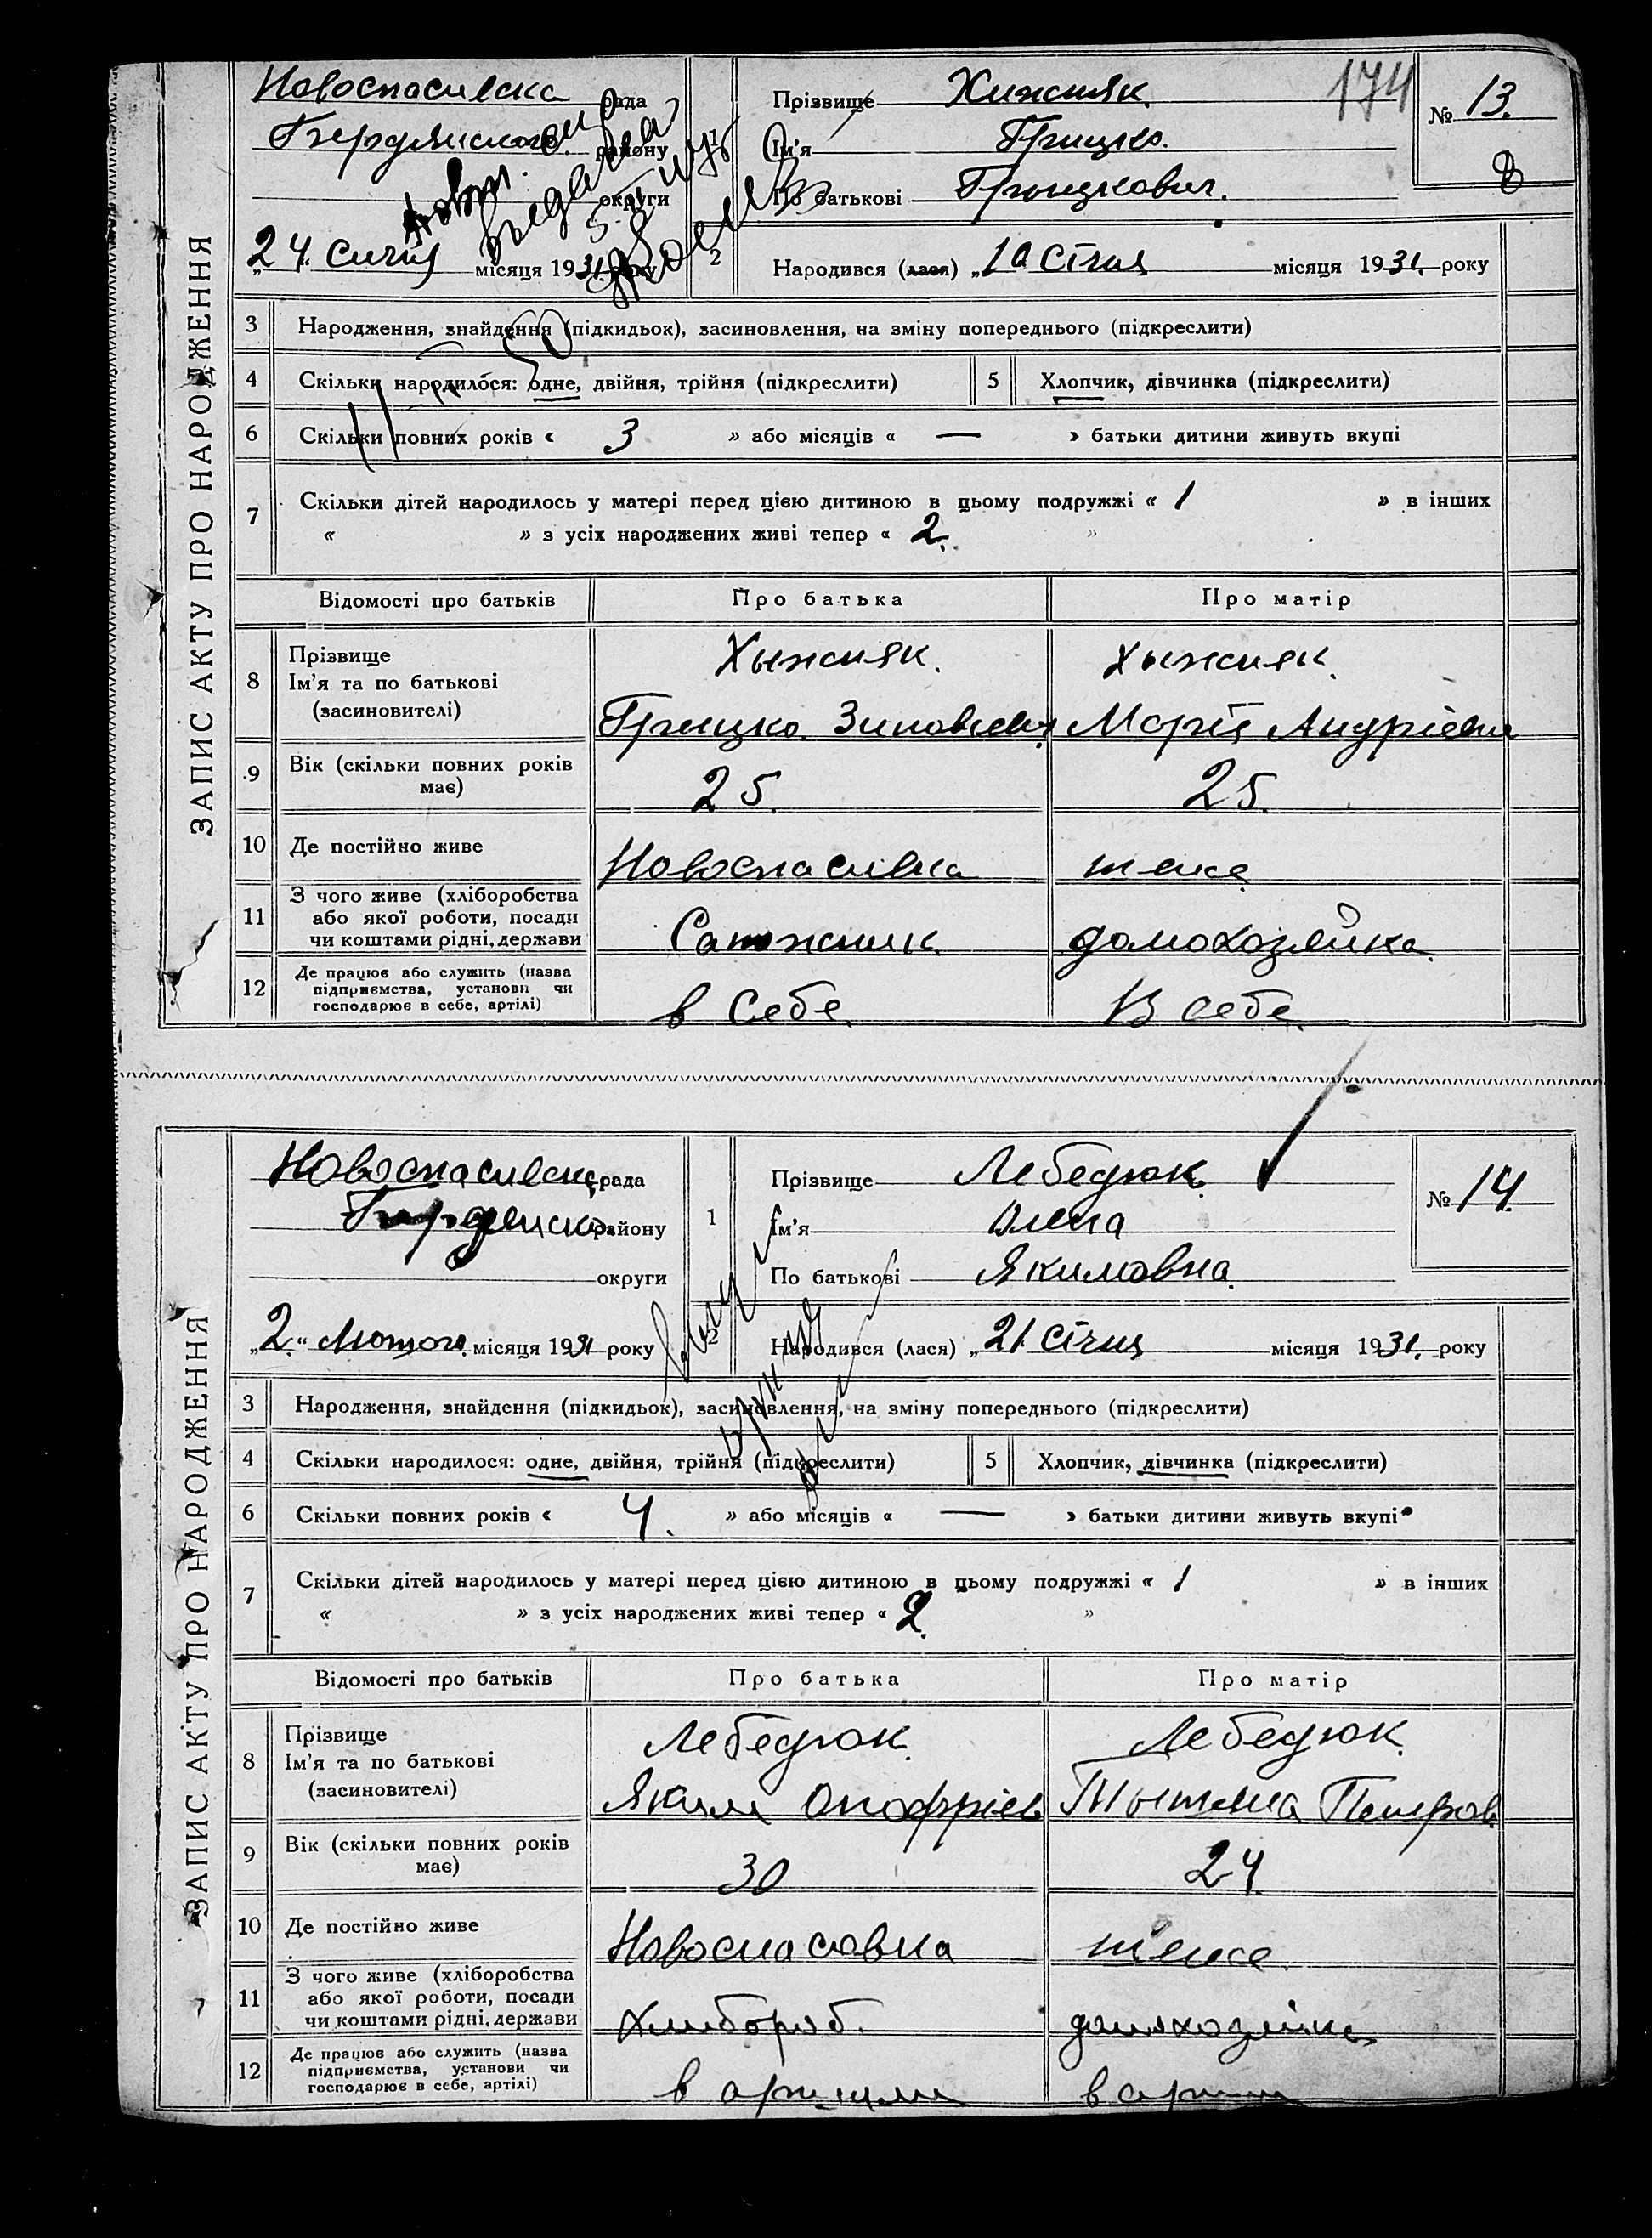 174
Новоспасивска рада
Бердянського району
округи
„24“ Сичня місяця 1931. року
Прізвище Хижняк.
Ім'я Грицко.
По батькові Грыцкович.
№ 13.
1
2
Народився (лася) „10 Січня місяця 1931. року
ЗАПИС АКТУ ПРО НАРОДЖЕННЯ
3 Народження, знайдення (підкидьок), засиновлення, на зміну попереднього (підкреслити)
4 Скільки народилося: одне, двійня, трійня (підкреслити)
5 Хлопчик, дівчинка (підкреслити)
6 Скільки повних років « 3 » або місяців « — » батьки дитини живуть вкупі
7 Скільки дітей народилось у матері перед цією дитиною в цьому подружжі « 1 » в інших
« » з усіх народжених живі тепер « 2. »
Відомості про батьків Про батька Про матір
8 Прізвище Хыжняк. Хыжняк.
Ім'я та по батькові
(засиновителі) Грицко. Зиновієвич Марія Андріевна
9 Вік (скільки повних років
має) 25. 25.
10 Де постійно живе Новоспасивка теж
11 З чого живе (хліборобства
або якої роботи, посади
чи коштами рідні, держави Сапожник. домохозяйка.
12 Де працює або служить (назва
підприємства, установи чи
господарює в себе, артілі) в себе. В себе.
Новоспасивска рада
Бердянско району
округи
„2.“ Лютого. місяця 1931 року
Прізвище Лебедюк.
Ім'я Олена
По батькові Якимовна.
№ 14.
1
2
Народився (лася) „21 Січня місяця 1931. року
ЗАПИС АКТУ ПРО НАРОДЖЕННЯ
3 Народження, знайдення (підкидьок), засиновлення, на зміну попереднього (підкреслити)
4 Скільки народилося: одне, двійня, трійня (підкреслити)
5 Хлопчик, дівчинка (підкреслити)
6 Скільки повних років « 4. » або місяців « — » батьки дитини живуть вкупі
7 Скільки дітей народилось у матері перед цією дитиною в цьому подружжі « 1 » в інших
« » з усіх народжених живі тепер « 2. »
Відомості про батьків Про батька Про матір
8 Прізвище Лебедюк. Лебедюк.
Ім'я та по батькові
(засиновителі) Яким Онофріев Тытяна Петров.
9 Вік (скільки повних років
має) 30 24.
10 Де постійно живе Новоспасовка теже.
11 З чого живе (хліборобства
або якої роботи, посади
чи коштами рідні, держави Хлибороб. домохозяйка
12 Де працює або служить (назва
підприємства, установи чи
господарює в себе, артілі) в артили в артили